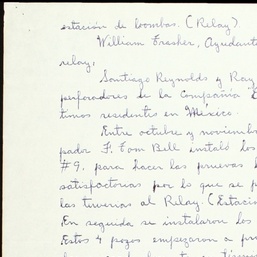 estación de bombas. (Relay)
William Fresher, Ayudante
relay,
Santiago Reynolds y Ray
perforadores de la Compañía
timos residentes en México.
Entre octubre y noviembre
pador F. Tom Bell instaló los
#9, para hacer las pruebas
satisfactorias por lo que se p
las tuverias al Relay. (Estació
En seguida se instalaron los
Estos 4 pozos empezaron a pr